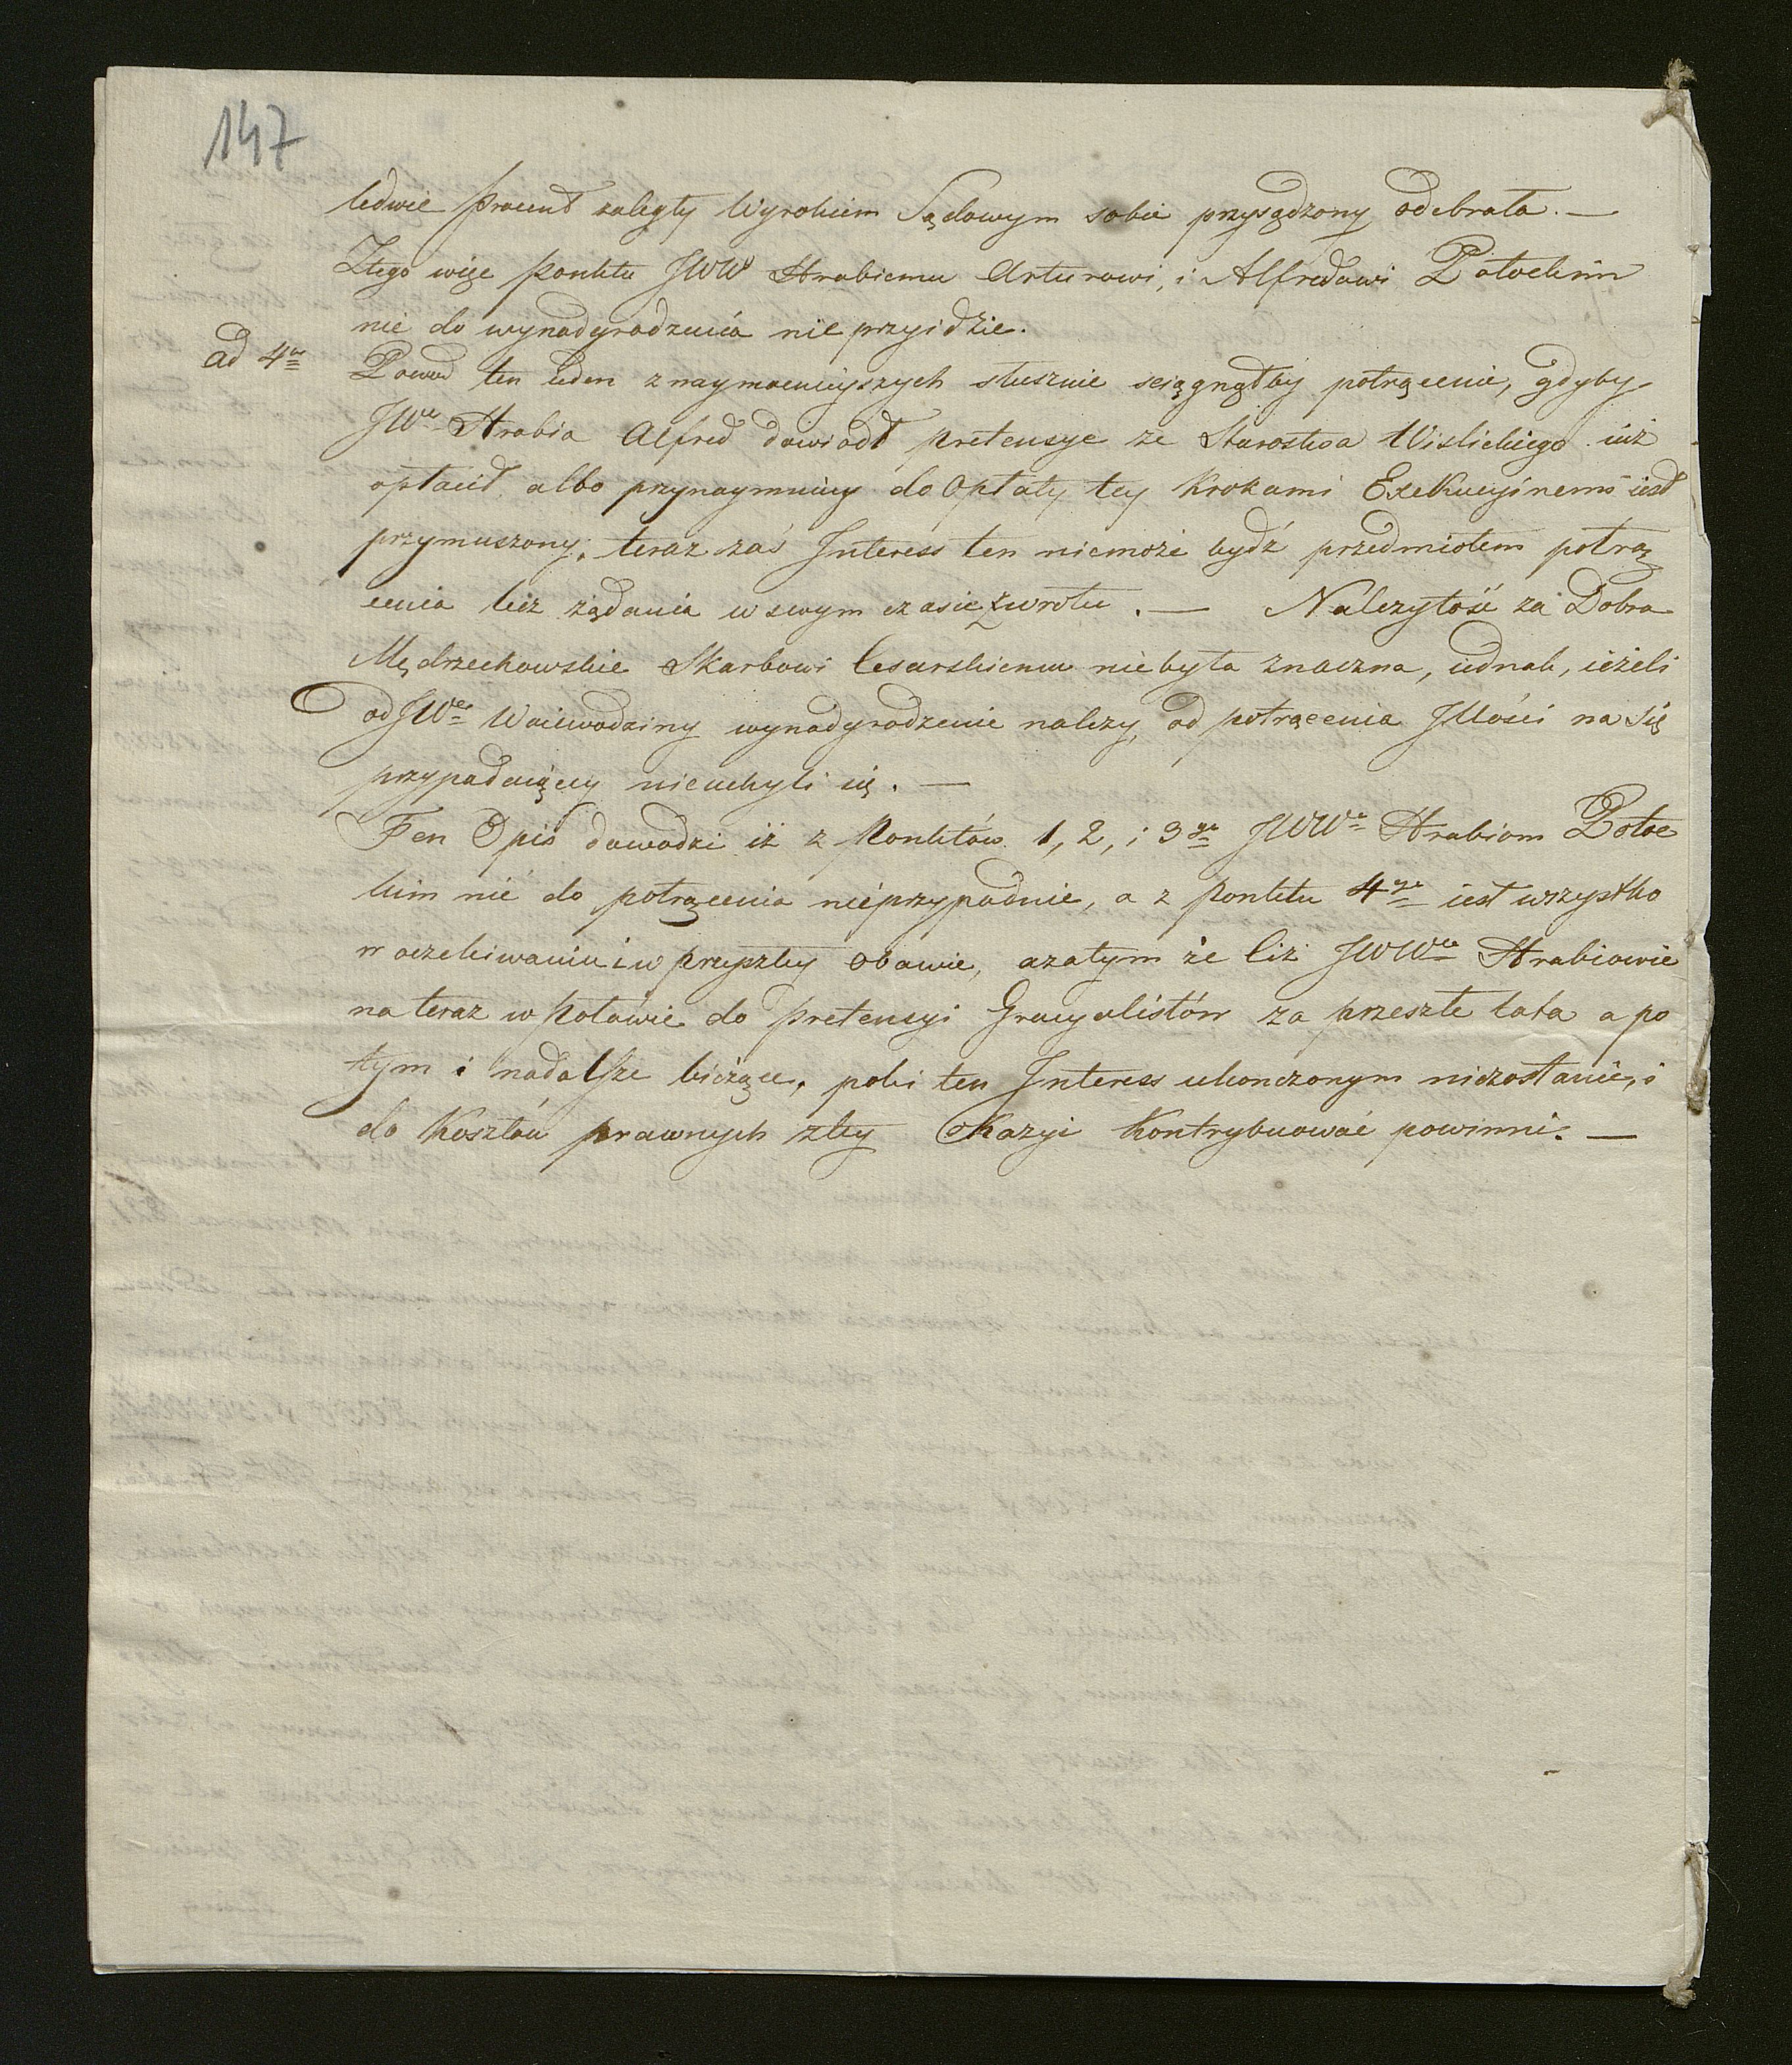 147
ledwie Procent zaległy Wyrokiem Sądowym sobie przysądzony odebrała. —
Ztego więc Ponktu JWW Hrabiemu Arturowi, i Alfredowi Potockim
nic do wynadgrodzenia nieprzyidzie.
ad 4m Powod ten ieden z naymocnieyszych słusznie sciągnąłby potrącenie, gdyby
JWy Hrabia Alfred dowiodł pretensye ze Starostwa Wislickiego iuż
opłacił albo przynaymniey do Opłaty tey krokami Exekucyinemi iest
przymuszony, teraz zaś Interess ten niemoże bydź przedmiotem potrą
cenia lecz żądania w swym czasie zwrotu. — Należytość za Dobra
Mędrzechowskie Skarbowi Cesarskiemu niebyła znaczna, iednak, ieżeli
od JWey Woiewodziny wynadgrodzenie należy, od potrącenia Jllości na Się
przypadaiącey nieuchyli się. —
Ten Opis dowodzi iż z Ponktów 1, 2, i 3go JWWm Hrabiom Potoc
kim nic do potrącenia nieprzypadnie, a z Ponktu 4go iest wszystko
w oczekiwaniu i w przyszłey obawie, azatym że Ciż JWWni Hrabiowie
na teraz w Połowie do Pretensyi Gracyalistów za przeszłe lata a po
tym i nadalsze bieżące, poki ten Interess ukonczonym niezostanie, i
do Kosztów prawnych ztey Okazyi Kontrybuować powinni. —